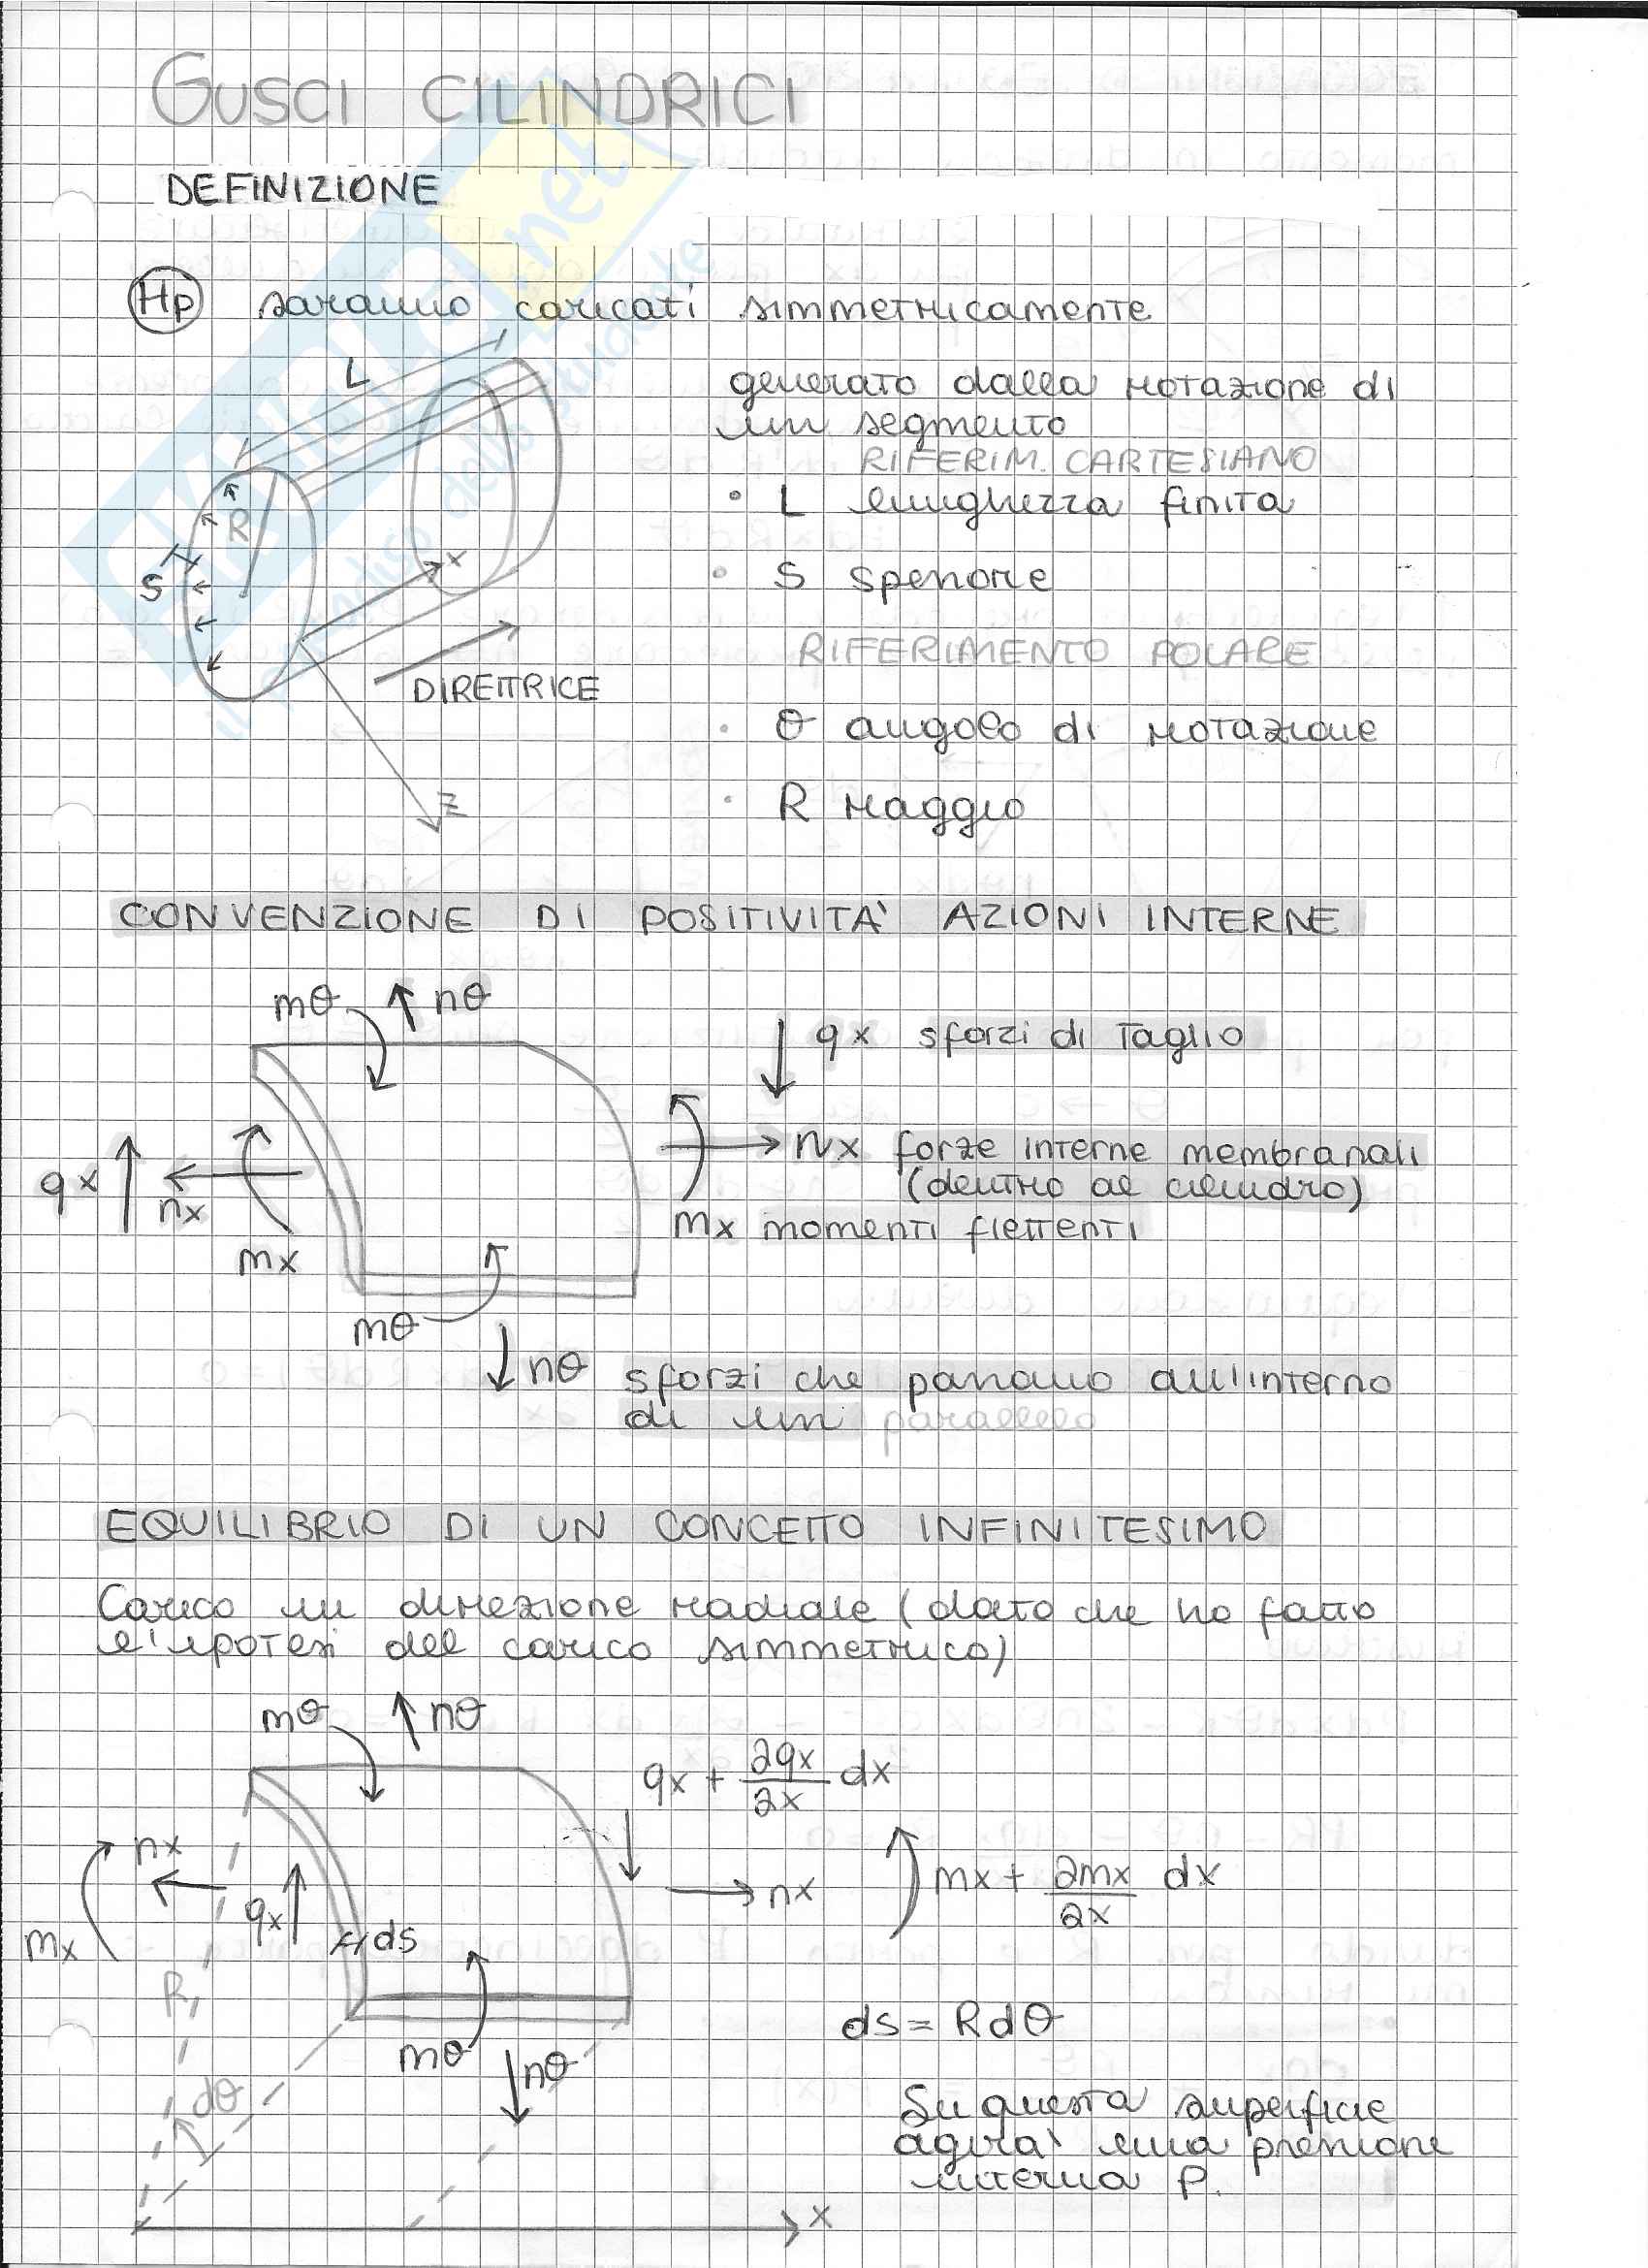 GUSCI CILINDRICI
DEFINIZIONE
Hp saranno caricati simmetricamente
L
generato dalla rotazione di
un segmento
RIFERIM. CARTESIANO
R
• L lunghezza finita
x
S
• S spessore
RIFERIMENTO POLARE
DIRETTRICE
• θ angolo di rotazione
z
• R raggio
CONVENZIONE DI POSITIVITA' AZIONI INTERNE
mθ nθ
qx sforzi di taglio
nx forze interne membranali
(dentro al cilindro)
qx
nx
mx
mx momenti flettenti
mθ
nθ sforzi che passano all'interno
di un parallelo
EQUILIBRIO DI UN CONCETTO INFINITESIMO
Carico in direzione radiale (dato che ho fatto
l'ipotesi del carico simmetrico)
mθ nθ
qx + ∂qx/∂x dx
nx
mx + ∂mx/∂x dx
nx
qx
mx
ds
R
mθ
ds = R dθ
nθ
dθ
Su questa superficie
agira' una pressione
interna P.
x
il paradiso dello studente